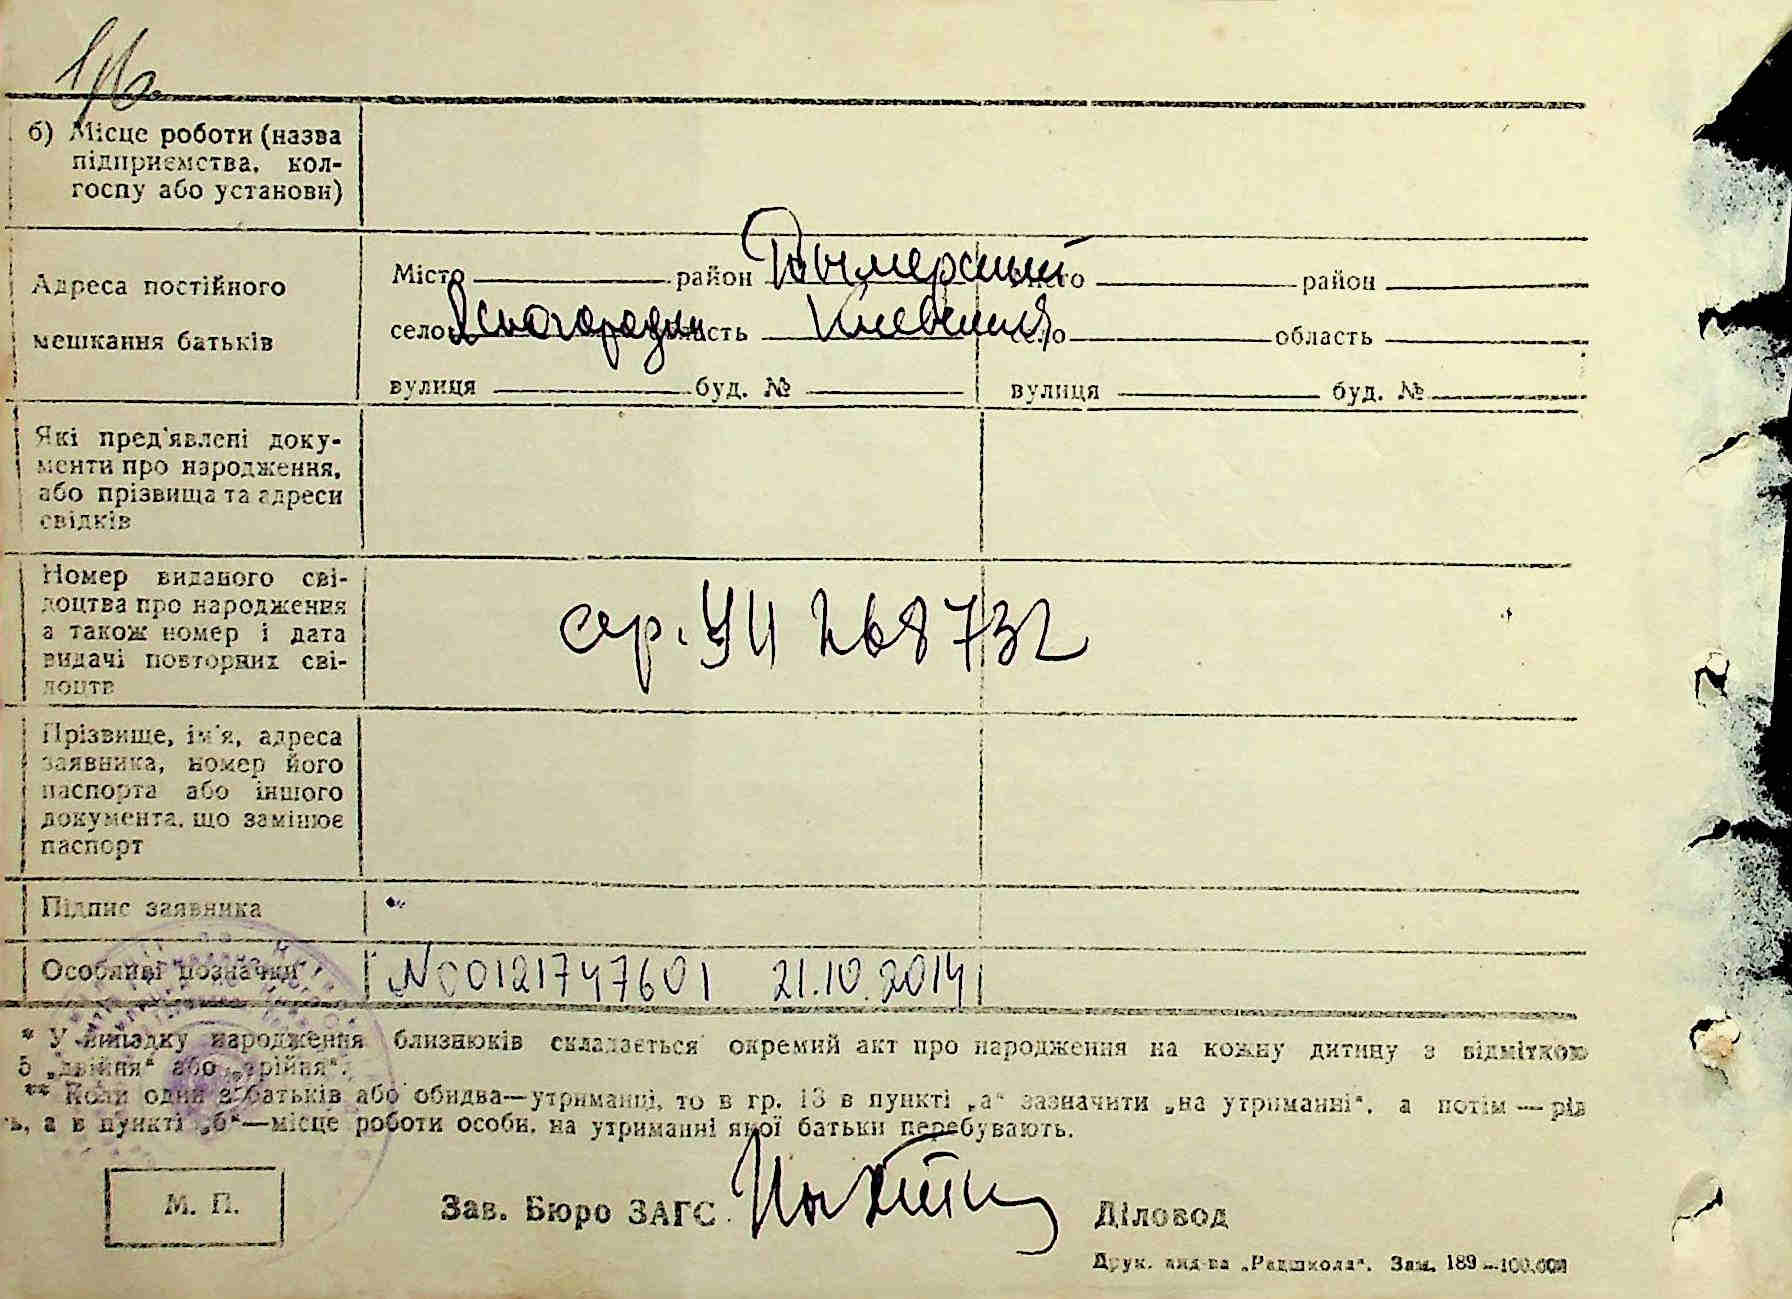 б) Місце роботи (назва
підприємства, кол-
госпу або установи)
Адреса постійного
мешкання батьків
Місто район Дымерский місто район
село Ясногородки область Киевская село область
вулиця буд. № вулиця буд. №
Які пред'явлені доку-
менти про народження,
або прізвища та адреси
свідків
Номер виданого сві-
доцтва про народження
а також номер і дата
видачі повторних сві-
доцтв
сер. УЦ 268732
Прізвище, ім'я, адреса
заявника, номер його
паспорта або іншого
документа, що замінює
паспорт
Підпис заявника
Особливі позначки
N00121747601 21.10.2014
* У випадку народження близнюків складається окремий акт про народження на кожну дитину з відміткою
„двійня“ або „трійня“.
** Коли один з батьків або обидва—утриманці, то в гр. 13 в пункті „а“ зазначити „на утриманні“, а потім — рід
а в пункті „б“—місце роботи особи, на утриманні якої батьки перебувають.
М. П.
Зав. Бюро ЗАГС
Діловод
Друк. вид-ва „Радшкола“. Зам. 189—100.000